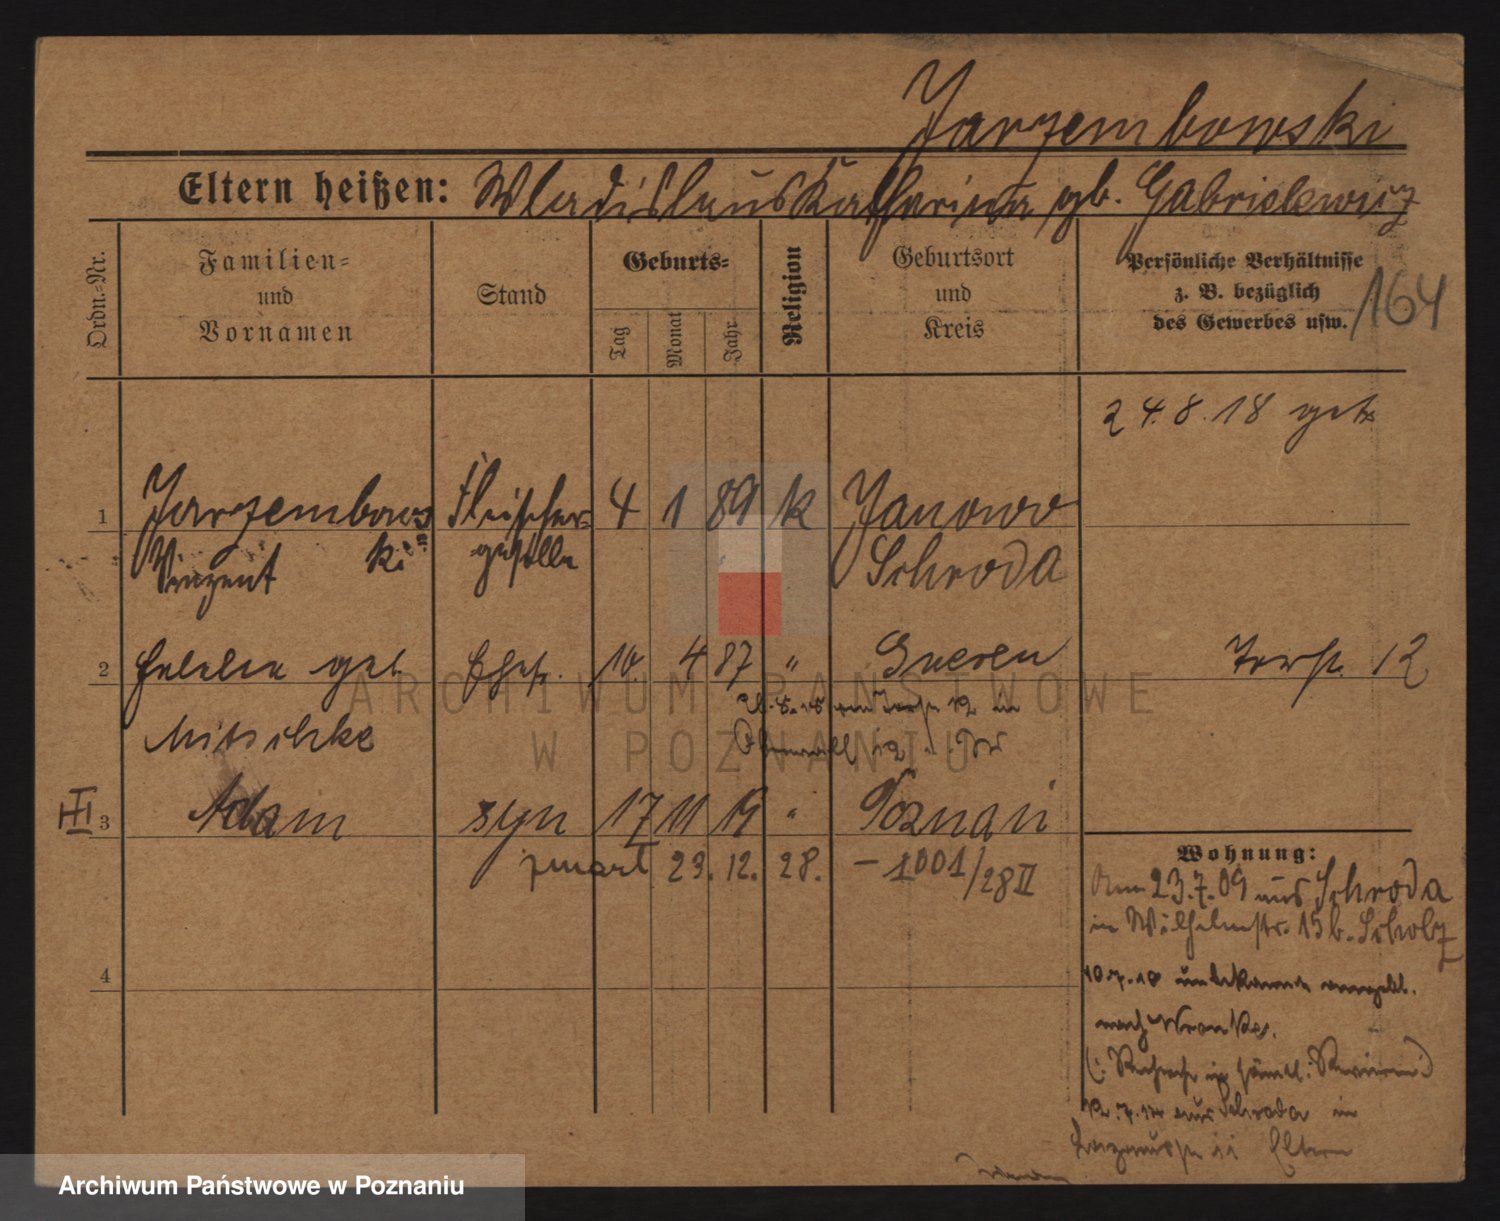 Jarzembowski
Eltern heißen: Wladislaus Katharina gb. Gabrielewicz
Ordn.-Nr.
Familien-
und
Vornamen
Stand
Geburts-
Tag
Monat
Jahr
Religion
Geburtsort
und
Kreis
Persönliche Verhältnisse
z. B. bezüglich
des Gewerbes usw.
164
24.8.18
1 Jarzembows Fleischer- 4 1 89 k Janowo
Vinzent ki geselle Schroda
2 geb. Ehefr. 10. 4 87 " Gnesen 12
Mitschke
III 3 Adam syn 17 11 19 " Poznań
zmarł 23. 12. 28. – 1001/28 II
Wohnung:
Am 23.7.09 aus Schroda
in Wilhelmstr. 15 b. Scholz
10.7.10 unbekannt
nach Wronke.
aus Schroda in
Eltern
4
ARCHIWUM PAŃSTWOWE
W POZNANIU
Archiwum Państwowe w Poznaniu